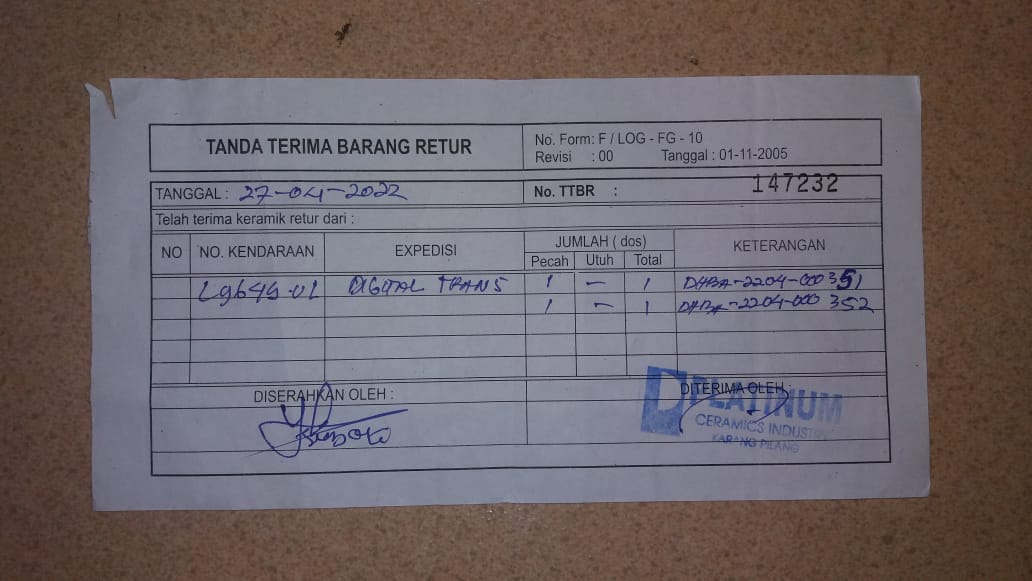 TANDA TERIMA BARANG RETUR
No. Form: F / LOG - FG - 10
Revisi : 00 Tanggal : 01-11-2005
TANGGAL : 27-04-2022 No. TTBR : 147232
Telah terima keramik retur dari :
NO NO. KENDARAAN EXPEDISI JUMLAH ( dos) KETERANGAN
Pecah Utuh Total
L9649-UL DIGITAL TRANS 1 - 1 DHBA-2204-000351
1 - 1 DHBA-2204-000352
DISERAHKAN OLEH : DITERIMA OLEH :
PLATINUM
CERAMICS INDUSTRY
KARANG PILANG